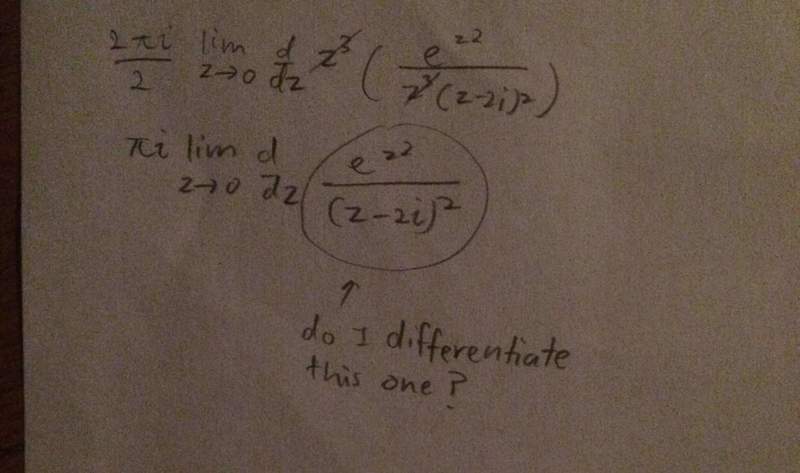 2πi/2 lim z→0 d/dz z³ ( e^z² / z³(z-2i)² )
πi lim z→0 d/dz e^z² / (z-2i)²
↑
do I differentiate
this one?